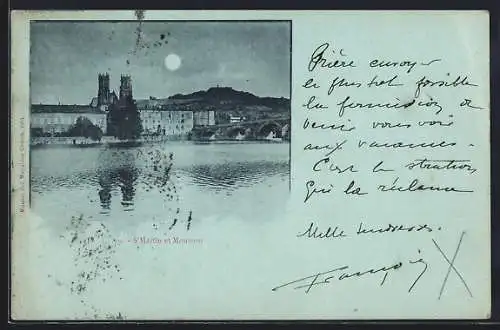 Prière envoyer
le plus tôt possible
la permission de
venir vous voir
aux vacances.
C'est la
qui la réclame
Mille tendresses.
François
- St Martin et Mousson